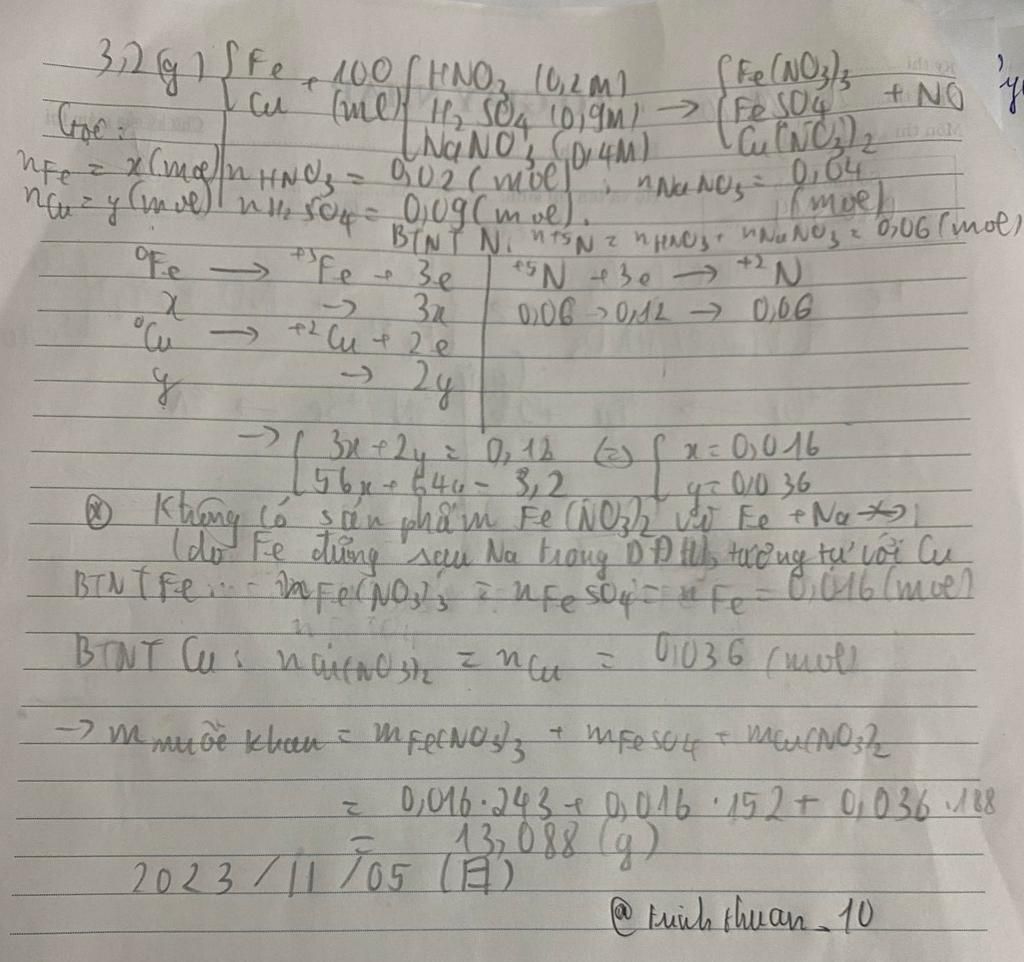 3,2 (g) { Fe + 100 { HNO3 (0,2M) { Fe(NO3)3
Cu (ml) H2SO4 (0,9M) → FeSO4 + NO
Gọi: NaNO3 (0,4M) Cu(NO3)2
nFe = x (mol) nHNO3 = 0,02 (mol) ; nNaNO3 = 0,04
nCu = y (mol) nH2SO4 = 0,09 (mol). (mol)
BTNT N: n+5N = nHNO3 + nNaNO3 = 0,06 (mol)
0Fe → +3Fe + 3e | +5N + 3e → +2N
x → 3x | 0,06 → 0,12 → 0,06
0Cu → +2Cu + 2e
y → 2y
→ { 3x + 2y = 0,12 (=) { x = 0,016
56x + 64y = 3,2 y = 0,036
Không có sản phẩm Fe(NO3)2 vì Fe + Na
(do Fe đứng sau Na trong tương tự với Cu
BTNT Fe: nFe(NO3)3 = nFeSO4 = nFe = 0,016 (mol)
BTNT Cu: nCu(NO3)2 = nCu = 0,036 (mol)
→ m muối khan = mFe(NO3)3 + mFeSO4 + mCu(NO3)2
= 0,016 . 243 + 0,016 . 152 + 0,036 . 188
= 13,088 (g)
2023/11/05 (日)
@trinhthuan_10